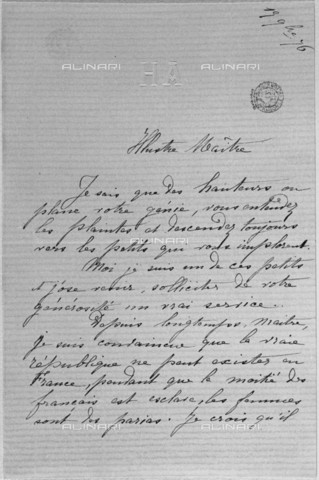 ALINARI
ALINARI
HA
Illustre Maître
Je sais que des hauteurs ou
plane votre génie, vous entendez
les plaintes et descendez toujours
vers les petits qui vous implorent.
Moi je suis un de ces petits
et j'ose venir, solliciter de votre
générosité un vrai service.
Depuis longtemps, Maître,
je suis convaincue que la vraie
république ne peut exister en
France, pendant que la moitié des
français est esclave, les femmes
sont des parias. Je crois qu'il